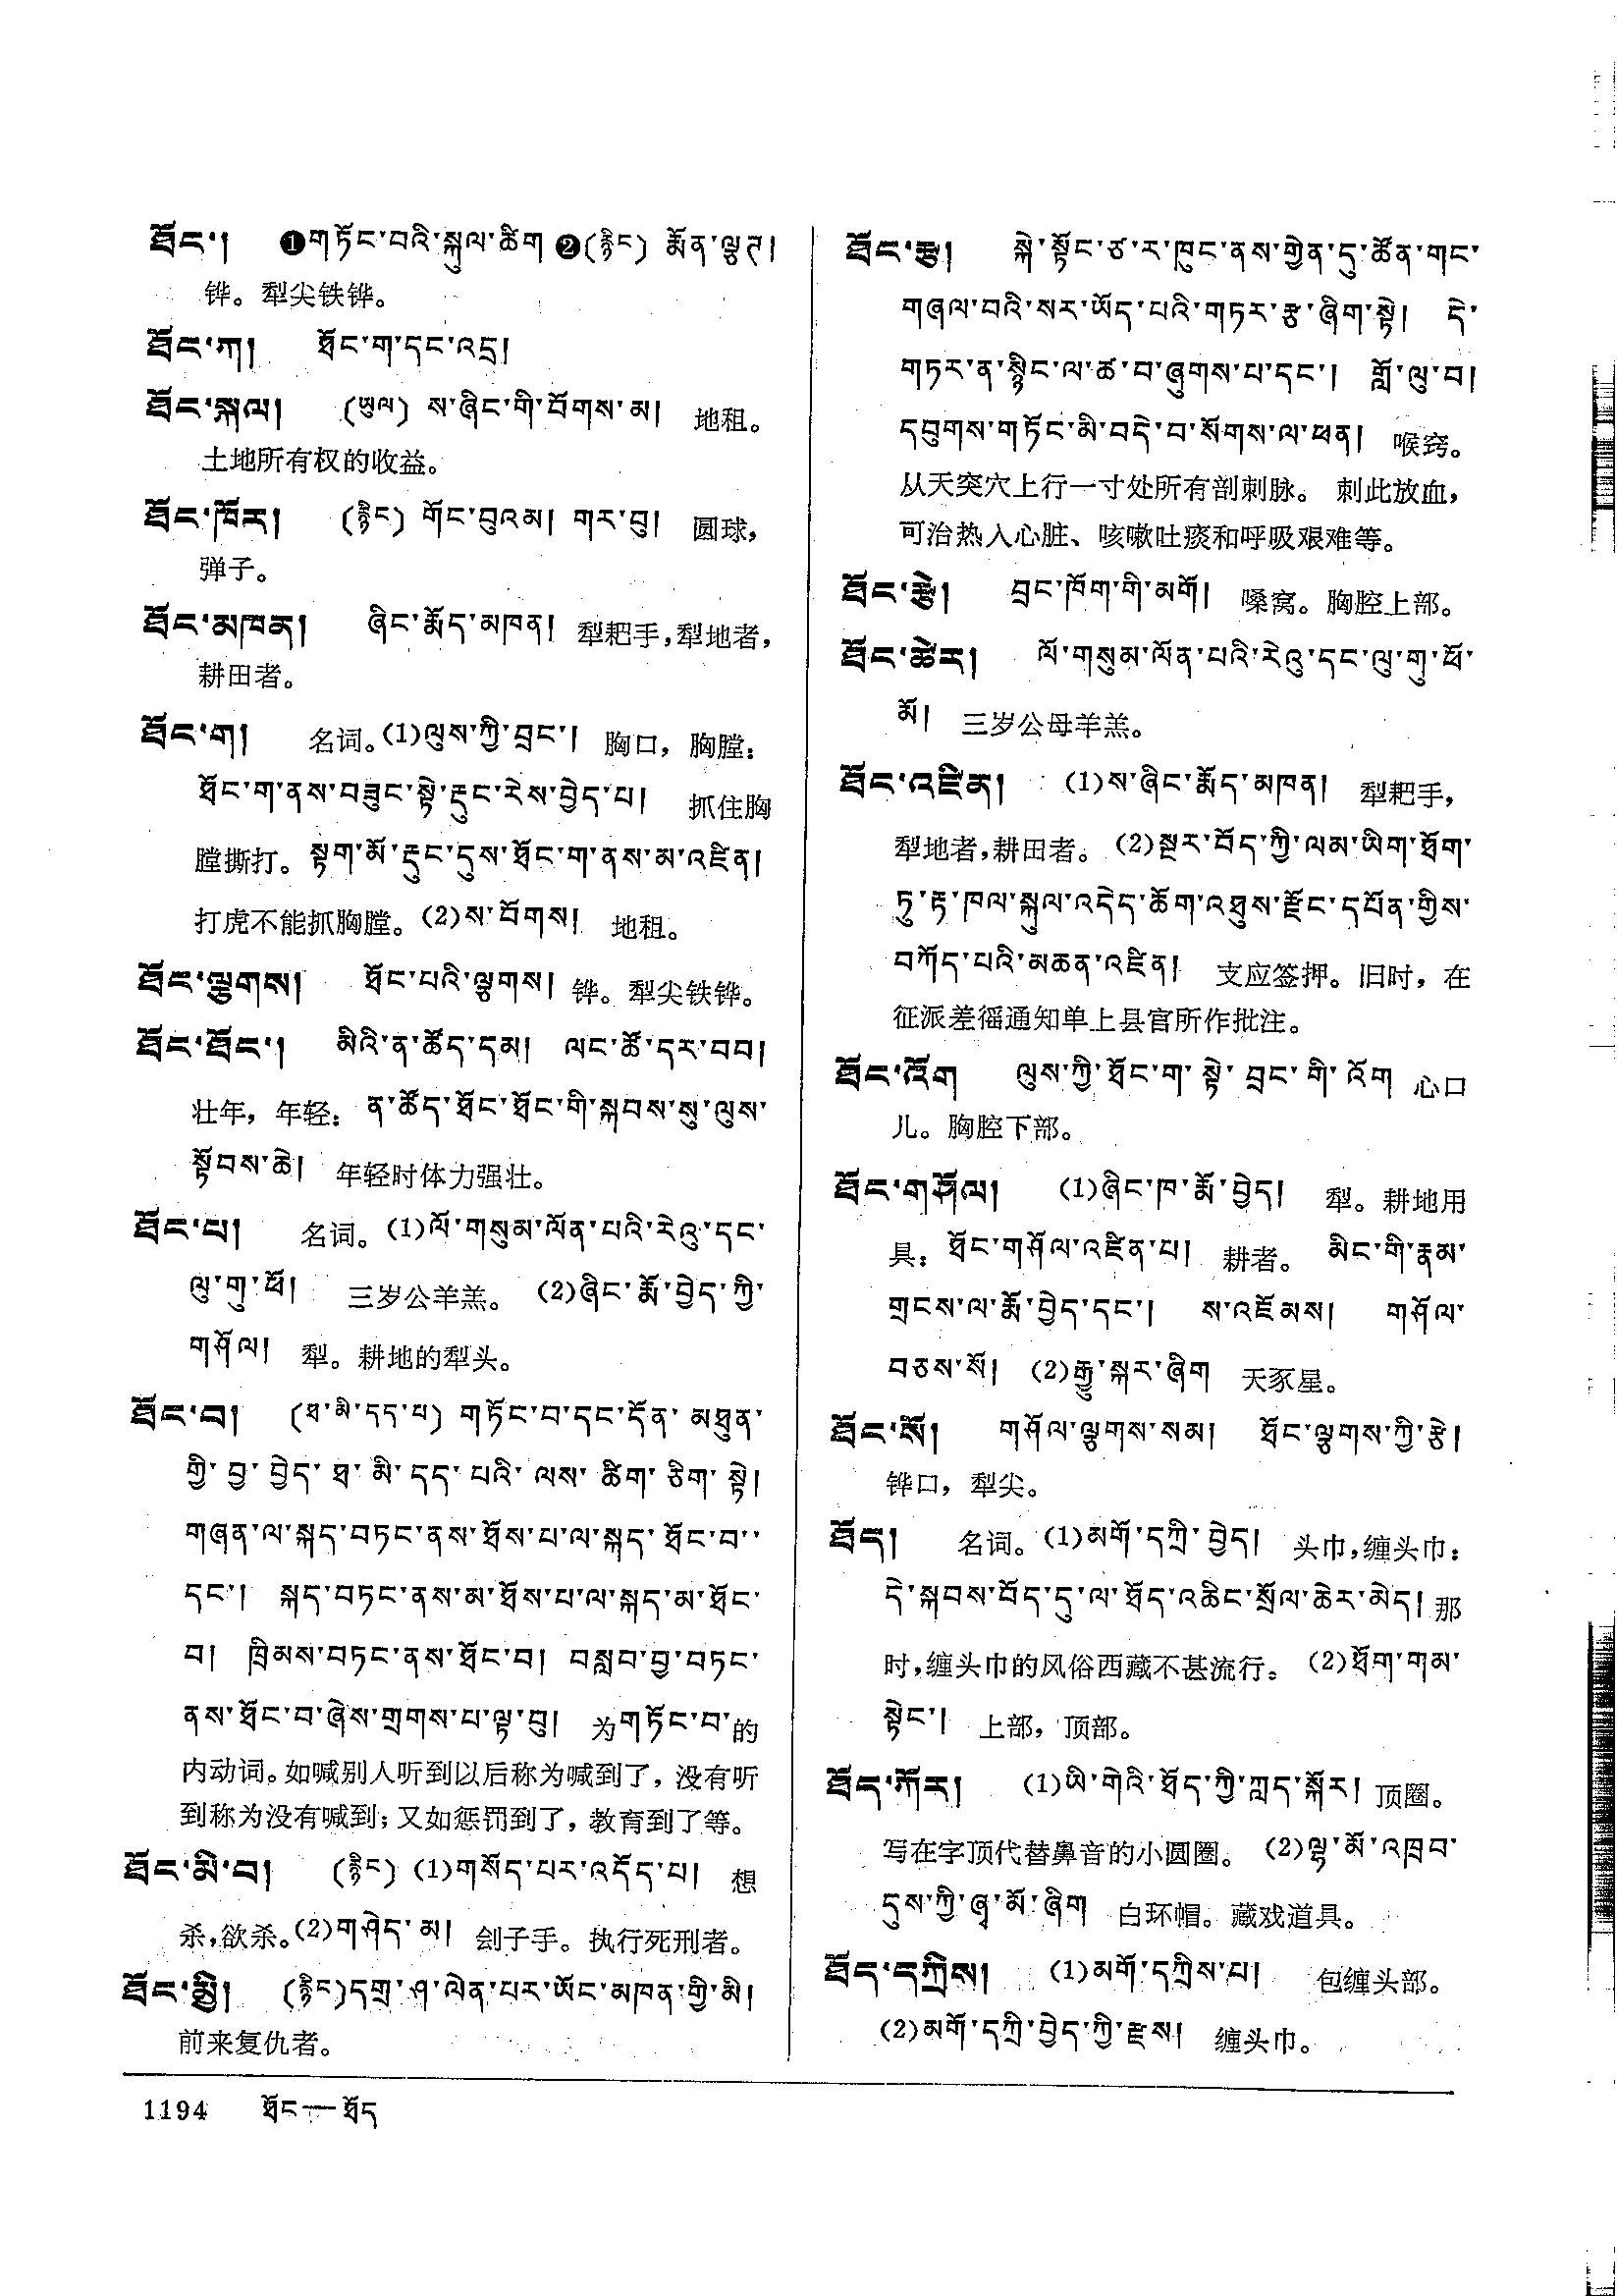 ཐོང་། ❶གཏོང་བའི་སྐུལ་ཚིག ❷(རྙིང) རྨོན་ལྕཊ།
铧。犁尖铁铧。
ཐོང་ཀ། ཐོང་ག་དང་འདྲ།
ཐོང་སྐལ། (ཡུལ) ས་ཞིང་གི་བོགས་མ། 地租。
土地所有权的收益。
ཐོང་ཁོར། (རྙིང) གོང་བུའམ། གར་བུ། 圆球，
弹子。
ཐོང་མཁན། ཞིང་རྨོད་མཁན། 犁耙手,犁地者，
耕田者。
ཐོང་ག། 名词。(1)ལུས་ཀྱི་བྲང་། 胸口，胸膛：
ཐོང་ག་ནས་བཟུང་སྟེ་རྡུང་རེས་བྱེད་པ། 抓住胸
膛撕打。སྟག་མོ་རྡུང་དུས་ཐོང་ག་ནས་མ་འཛིན།
打虎不能抓胸膛。(2)ས་བོགས། 地租。
ཐོང་ལྕགས། ཐོང་པའི་ལྕགས། 铧。犁尖铁铧。
ཐོང་ཐོང་། མིའི་ན་ཚོད་དམ། ལང་ཚོ་དར་བབ།
壮年，年轻：ན་ཚོད་ཐོང་ཐོང་གི་སྐབས་སུ་ལུས་
སྟོབས་ཆེ། 年轻时体力强壮。
ཐོང་པ། 名词。(1)ལོ་གསུམ་ལོན་པའི་རེའུ་དང་
ལུ་གུ་ཕོ། 三岁公羊羔。(2)ཞིང་རྨོ་བྱེད་ཀྱི་
གཤོལ། 犁。耕地的犁头。
ཐོང་བ། (ཐ་མི་དད་པ) གཏོང་བ་དང་དོན་མཐུན་
གྱི་བྱ་བྱེད་ཐ་མི་དད་པའི་ལས་ཚིག་ཅིག་སྟེ།
གཞན་ལ་སྐད་བཏང་ནས་ཐོས་པ་ལ་སྐད་ཐོང་བ་
དང་། སྐད་བཏང་ནས་མ་ཐོས་པ་ལ་སྐད་མ་ཐོང་
བ། ཁྲིམས་བཏང་ནས་ཐོང་བ། བསླབ་བྱ་བཏང་
ནས་ཐོང་བ་ཞེས་གྲགས་པ་ལྟ་བུ། 为གཏོང་བ་的
内动词。如喊别人听到以后称为喊到了，没有听
到称为没有喊到；又如惩罚到了，教育到了等。
ཐོང་མི་བ། (རྙིང) (1)གསོད་པར་འདོད་པ། 想
杀,欲杀。(2)གཤེད་མ། 刽子手。执行死刑者。
ཐོང་མྱི། (རྙིང)དགྲ་ཤ་ལེན་པར་ཡོང་མཁན་གྱི་མི།
前来复仇者。
ཐོང་རྩ། སྐེ་སྟོང་ཙ་ར་ཁུང་ནས་གྱེན་དུ་ཚོན་གང་
གཞལ་བའི་སར་ཡོད་པའི་གཏར་རྩ་ཞིག་སྟེ། དེ་
གཏར་ན་སྙིང་ལ་ཚ་བ་ཞུགས་པ་དང་། གློ་ལུ་བ།
དབུགས་གཏོང་མི་བདེ་བ་སོགས་ལ་ཕན། 喉窍。
从天突穴上行一寸处所有剖刺脉。刺此放血，
可治热入心脏、咳嗽吐痰和呼吸艰难等。
ཐོང་རྩེ། བྲང་ཁོག་གི་མགོ། 嗓窝。胸腔上部。
ཐོང་ཚེར། ལོ་གསུམ་ལོན་པའི་རེའུ་དང་ལུ་གུ་ཕོ་
མོ། 三岁公母羊羔。
ཐོང་འཛིན། (1)ས་ཞིང་རྨོད་མཁན། 犁耙手，
犁地者,耕田者。(2)སྔར་བོད་ཀྱི་ལམ་ཡིག་ཐོག་
ཏུ་རྟ་ཁལ་སྐུལ་འདེད་ཆོག་འཐུས་རྫོང་དཔོན་གྱིས་
བཀོད་པའི་མཆན་འཛིན། 支应签押。旧时，在
征派差徭通知单上县官所作批注。
ཐོང་འོག ལུས་ཀྱི་ཐོང་ག་སྟེ་བྲང་གི་འོག 心口
儿。胸腔下部。
ཐོང་གཤོལ། (1)ཞིང་ཁ་རྨོ་བྱེད། 犁。耕地用
具：ཐོང་གཤོལ་འཛིན་པ། 耕者。མིང་གི་རྣམ་
གྲངས་ལ་རྨོ་བྱེད་དང་། ས་འཇོམས། གཤོལ་
བཅས་སོ། (2)རྒྱུ་སྐར་ཞིག 天豕星。
ཐོང་སོ། གཤོལ་ལྕགས་སམ། ཐོང་ལྕགས་ཀྱི་རྩེ།
铧口，犁尖。
ཐོད། 名词。(1)མགོ་དཀྲི་བྱེད། 头巾,缠头巾：
དེ་སྐབས་བོད་དུ་ལ་ཐོད་འཆིང་སྲོལ་ཆེར་མེད། 那
时,缠头巾的风俗西藏不甚流行。(2)ཐོག་གམ་
སྟེང་། 上部，顶部。
ཐོད་ཀོར། (1)ཡི་གེའི་ཐོད་ཀྱི་ཀླད་སྐོར། 顶圈。
写在字顶代替鼻音的小圆圈。(2)ལྷ་མོ་འཁྲབ་
དུས་ཀྱི་ཞྭ་མོ་ཞིག 白环帽。藏戏道具。
ཐོད་དཀྲིས། (1)མགོ་དཀྲིས་པ། 包缠头部。
(2)མགོ་དཀྲི་བྱེད་ཀྱི་རྫས། 缠头巾。
1194 ཐོང—ཐོད